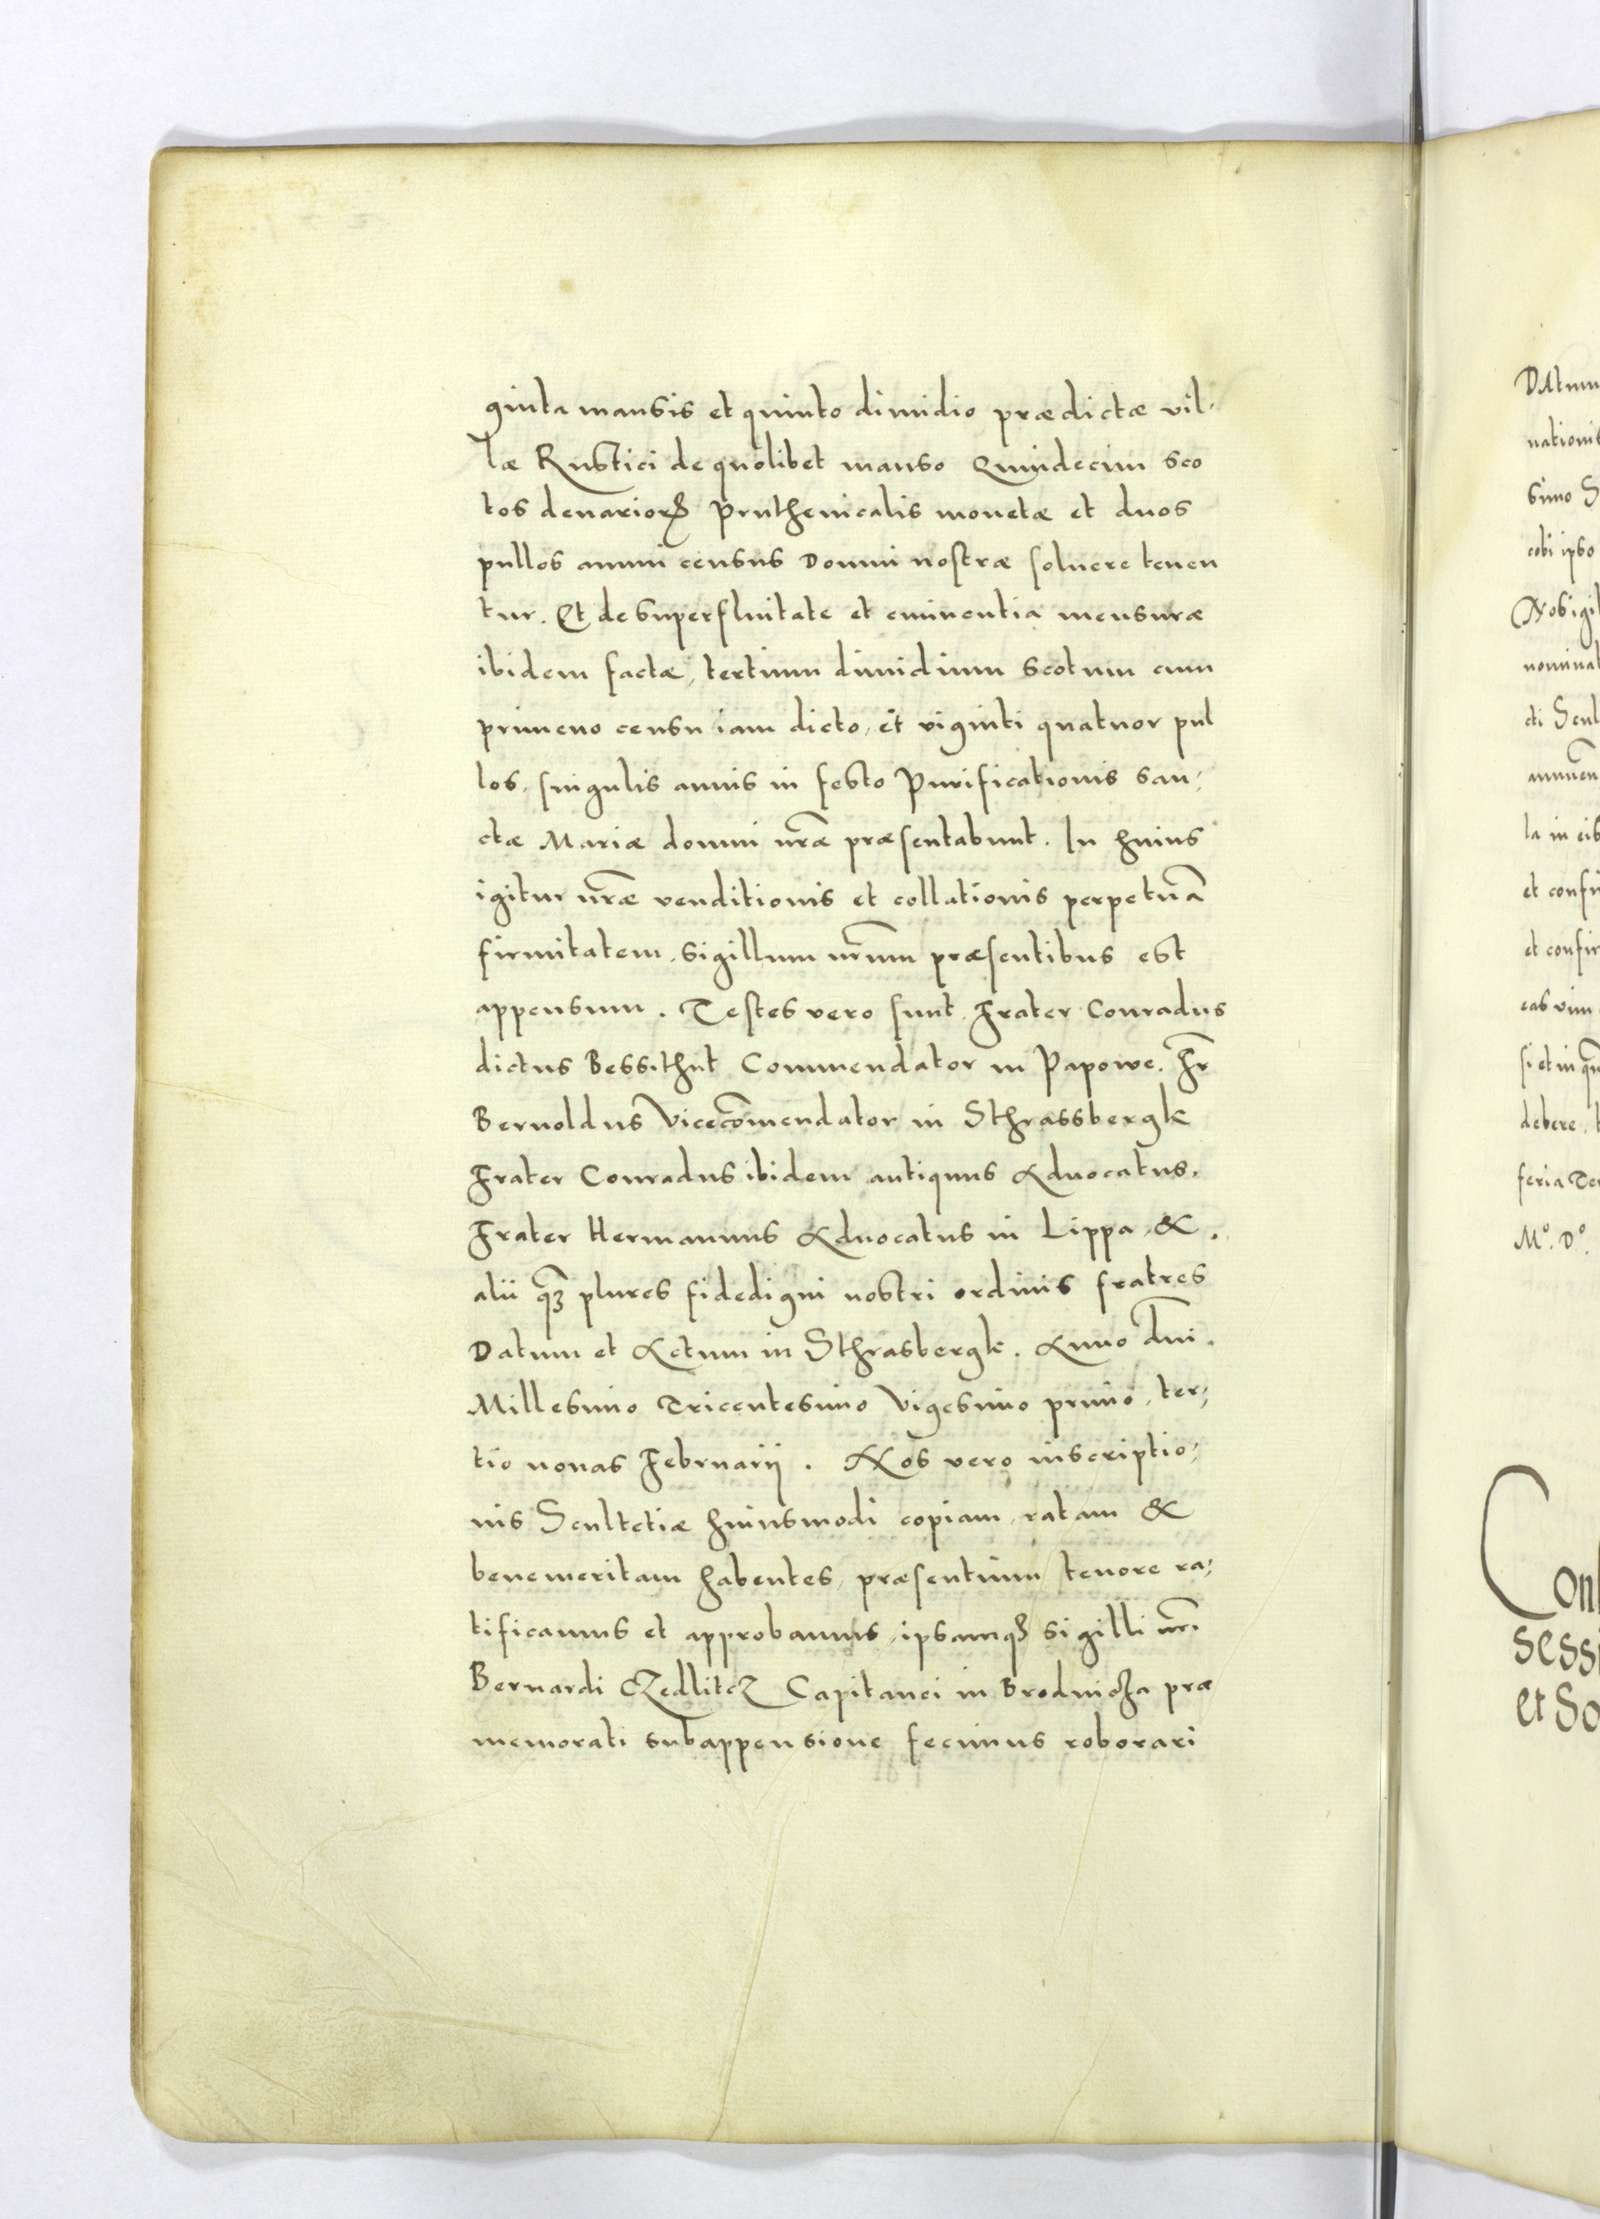 ginta mansis et quinto dimidio prædictæ vil-
læ Rustici de quolibet manso Quindecim sco
tos denarioꝝ Pruthenicalis monetæ et duos
pullos annui census Domui nostræ soluere tenen
tur. Et de superfluitate et eminentia mensuræ
ibidem factæ, tertium dimidium scotum cum
primeno censu iam dicto, et viginti quatuor pul
los, singulis annis in festo Purificationis san-
ctæ Mariæ domui nr̃æ præsentabunt. In huius
igitur nr̃æ venditionis et collationis perpetuã
firmitatem, sigillum nr̃um præsentibus est
appensum. Testes vero sunt Frater Conradus
dictus Bessithut Commendator in Papowe. Fr̃
Bernoldus Vicecõmendator in Sthrassbergk
Frater Conradus ibidem antiquus Aduocatus.
Frater Hermannus Aduocatus in Lippa, &.
alii qꝫ̃ plures fidedigni nostri ordinis fratres
Datum et Actum in Sthrasbergk. Anno dñi.
Millesimo Tricentesimo Vigesimo primo, ter-
tio nonas Februarij. Nos vero inscriptio-
nis Scultetiæ huiusmodi copiam, ratam &
benemeritam habentes, præsentium tenore ra-
tificamus et approbamus, ipsamqꝫ sigilli nr̃i
Bernardi CZedlitcz Capitanei in Brodnicza præ
memorati subappensione fecimus roborari
DAtum
nationis
simo S
cobi ipso
Nos igit
nominat
cti Scul
annuen
la in eis
et confir
et confir
eas vim
si et in qu
debere, t
feria Ter
M°. D°.
Con
sessi
et So